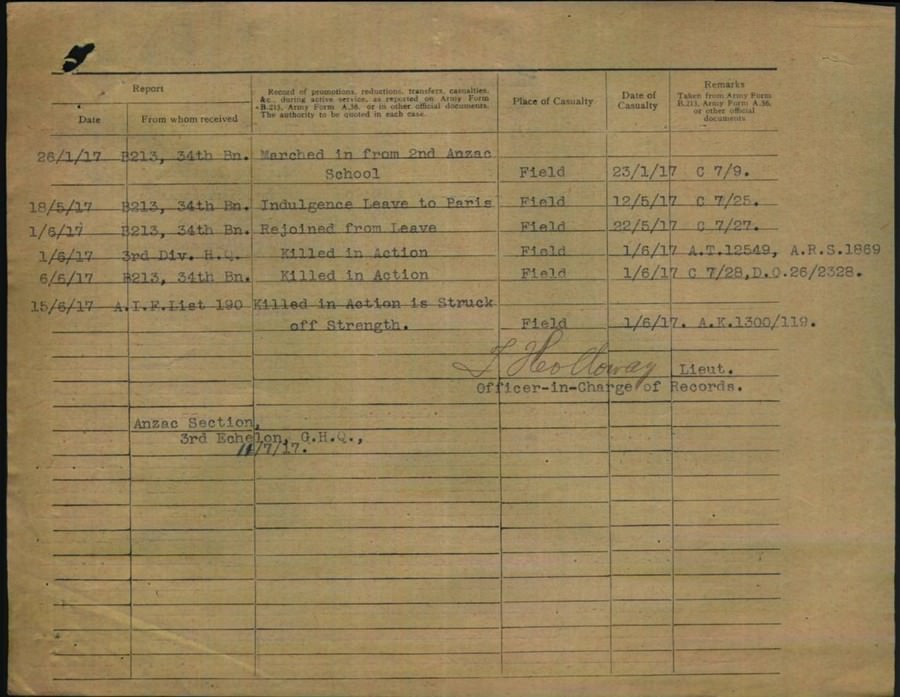 Report
Date
From whom received
Record of promotions, reductions, transfers, casualties,
&c., during active service, as reported on Army Form
B.213, Army Form A.36, or in other official documents.
The authority to be quoted in each case.
Place of Casualty
Date of
Casualty
Remarks
Taken from Army Form
B.213, Army Form A.36,
or other official
documents
26/1/17 B213, 34th Bn. Marched in from 2nd Anzac
School Field 23/1/17 C 7/9.
18/5/17 B213, 34th Bn. Indulgence Leave to Paris Field 12/5/17 C 7/25.
1/6/17 B213, 34th Bn. Rejoined from Leave Field 22/5/17 C 7/27.
1/6/17 3rd Div. H.Q. Killed in Action Field 1/6/17 A.T.12549, A.R.S.1869
6/6/17 B213, 34th Bn. Killed in Action Field 1/6/17 C 7/28,D.O.26/2328.
15/6/17 A.I.F.List 190 Killed in Action is Struck
off Strength. Field 1/6/17. A.K.1300/119.
Holloway Lieut.
Officer-in-Charge of Records.
Anzac Section,
3rd Echelon, G.H.Q.,
/7/17.